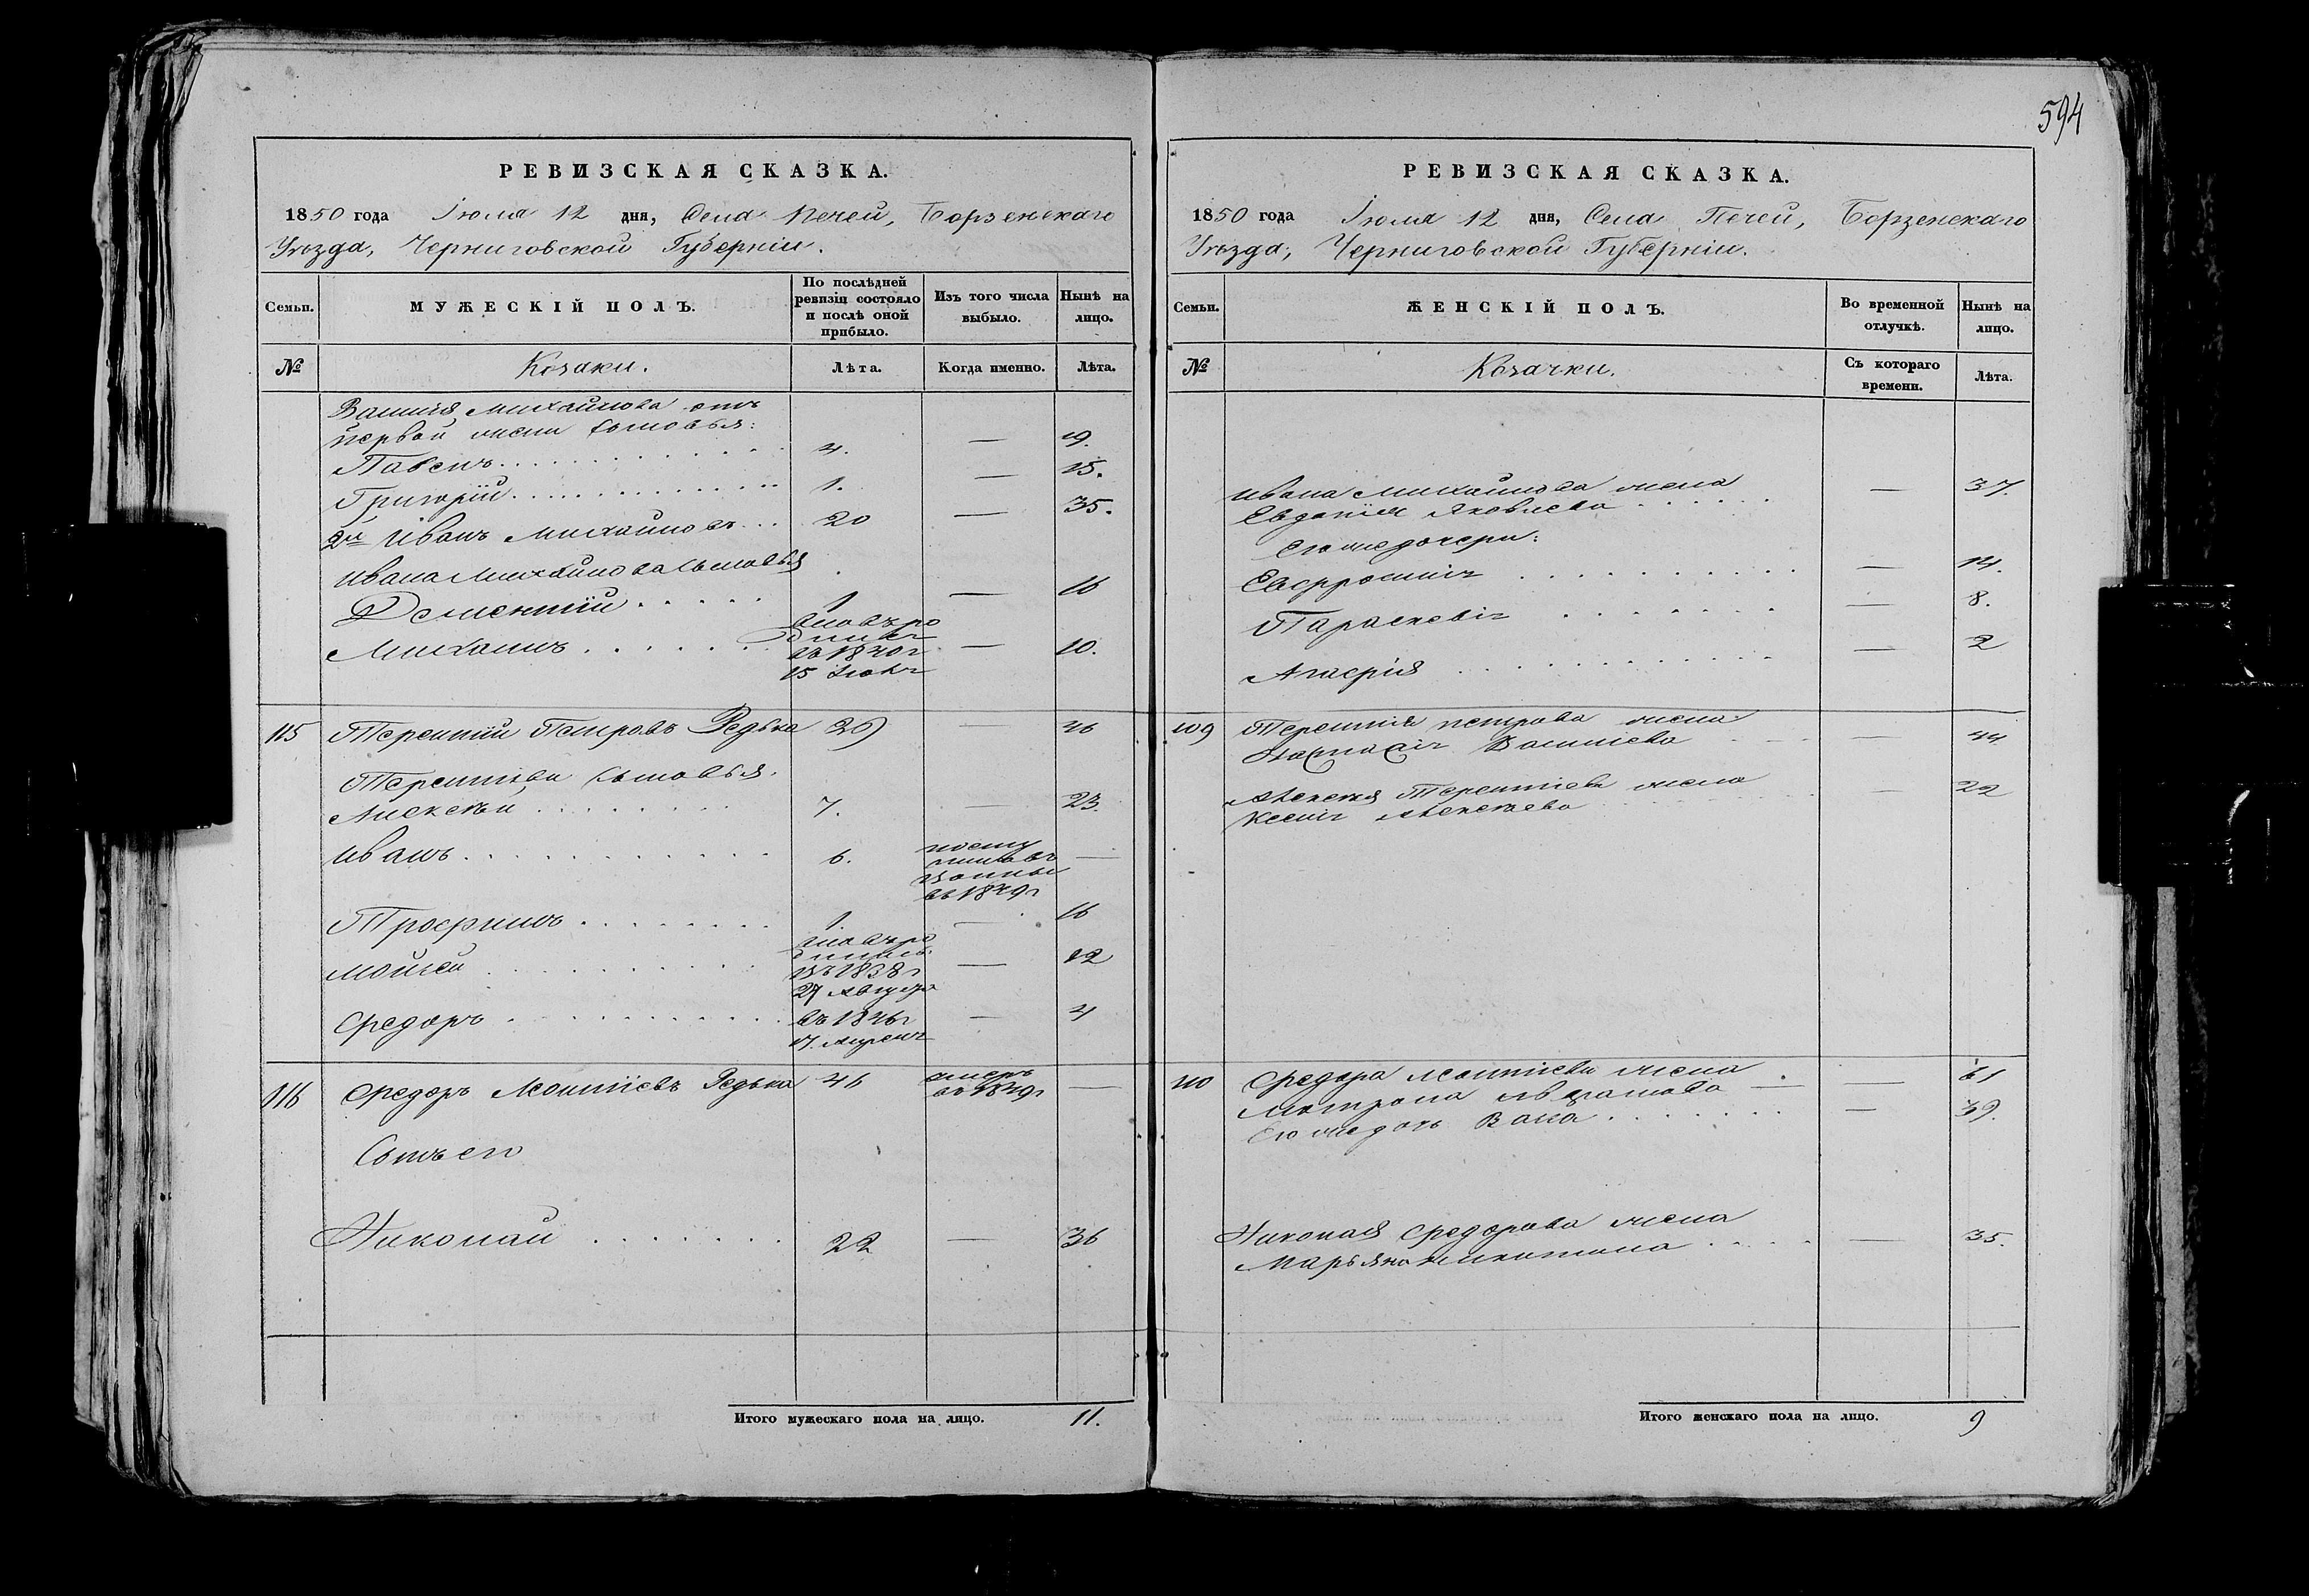 594
РЕВИЗСКАЯ СКАЗКА.
1850 года Іюля 12 дня, Села Печей, Борзенскаго
Уѣзда, Черниговской Губерніи.
Семьи.
МУЖЕСКІЙ ПОЛЪ.
По послѣдней ревизіи состояло и послѣ оной прибыло.
Изъ того числа выбыло.
Нынѣ на лицо.
№
Козаки.
Лѣта.
Когда именно.
Лѣта.
Василія Михайлова отъ
первой жены сыновья:
Павелъ 4. — 19.
Григорій 1. — 15.
2й Иванъ Михайловъ 20 — 35.
Ивана Михайлова сыновья
Дементій 1 — 16
Михаилъ
вновь ро
дился
въ 1840г
15 Іюля
— 10.
115 Терентій Петровъ Редька 29 — 46
Терентія сыновья.
Алексѣй 7. — 23.
Иванъ 6.
въ 1849г
—
Трофимъ 1. — 16
Мойсей
вновь ро
дился
въ 1838г
27 Августа
— 12
Федоръ
въ 1846г
17 Апреля
— 4
116 Федоръ Леонтіевъ Редька 46
умеръ
въ 1849г
—
Сынъ его
Николай 22 — 36
Итого мужескаго пола на лицо. 11.
РЕВИЗСКАЯ СКАЗКА.
1850 года Іюля 12 дня, Села Печей, Борзенскаго
Уѣзда, Черниговской Губерніи.
Семьи.
ЖЕНСКІЙ ПОЛЪ.
Во временной отлучкѣ.
Нынѣ на лицо.
№
Козачки.
Съ котораго времени.
Лѣта.
Ивана Михайлова жена
Евдокія Яковлева — 37.
Его же дочери:
Евфросинія — 14.
Параскевія — 8.
Агафія — 2
109 Терентія Петрова жена
Настасія Василіева — 44
Алексѣя Терентіева жена
Ксенія Алексѣева — 22
110 Федора Леонтіева жена
Мотрона — 61
Его же дочь — 39.
Николая Федорова жена
Марьяна Никитина — 35.
Итого женскаго пола на лицо. 9